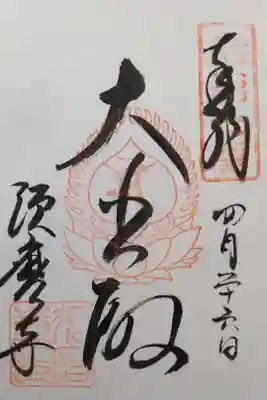 奉拝
四月二十六日
大悲殿
須磨寺